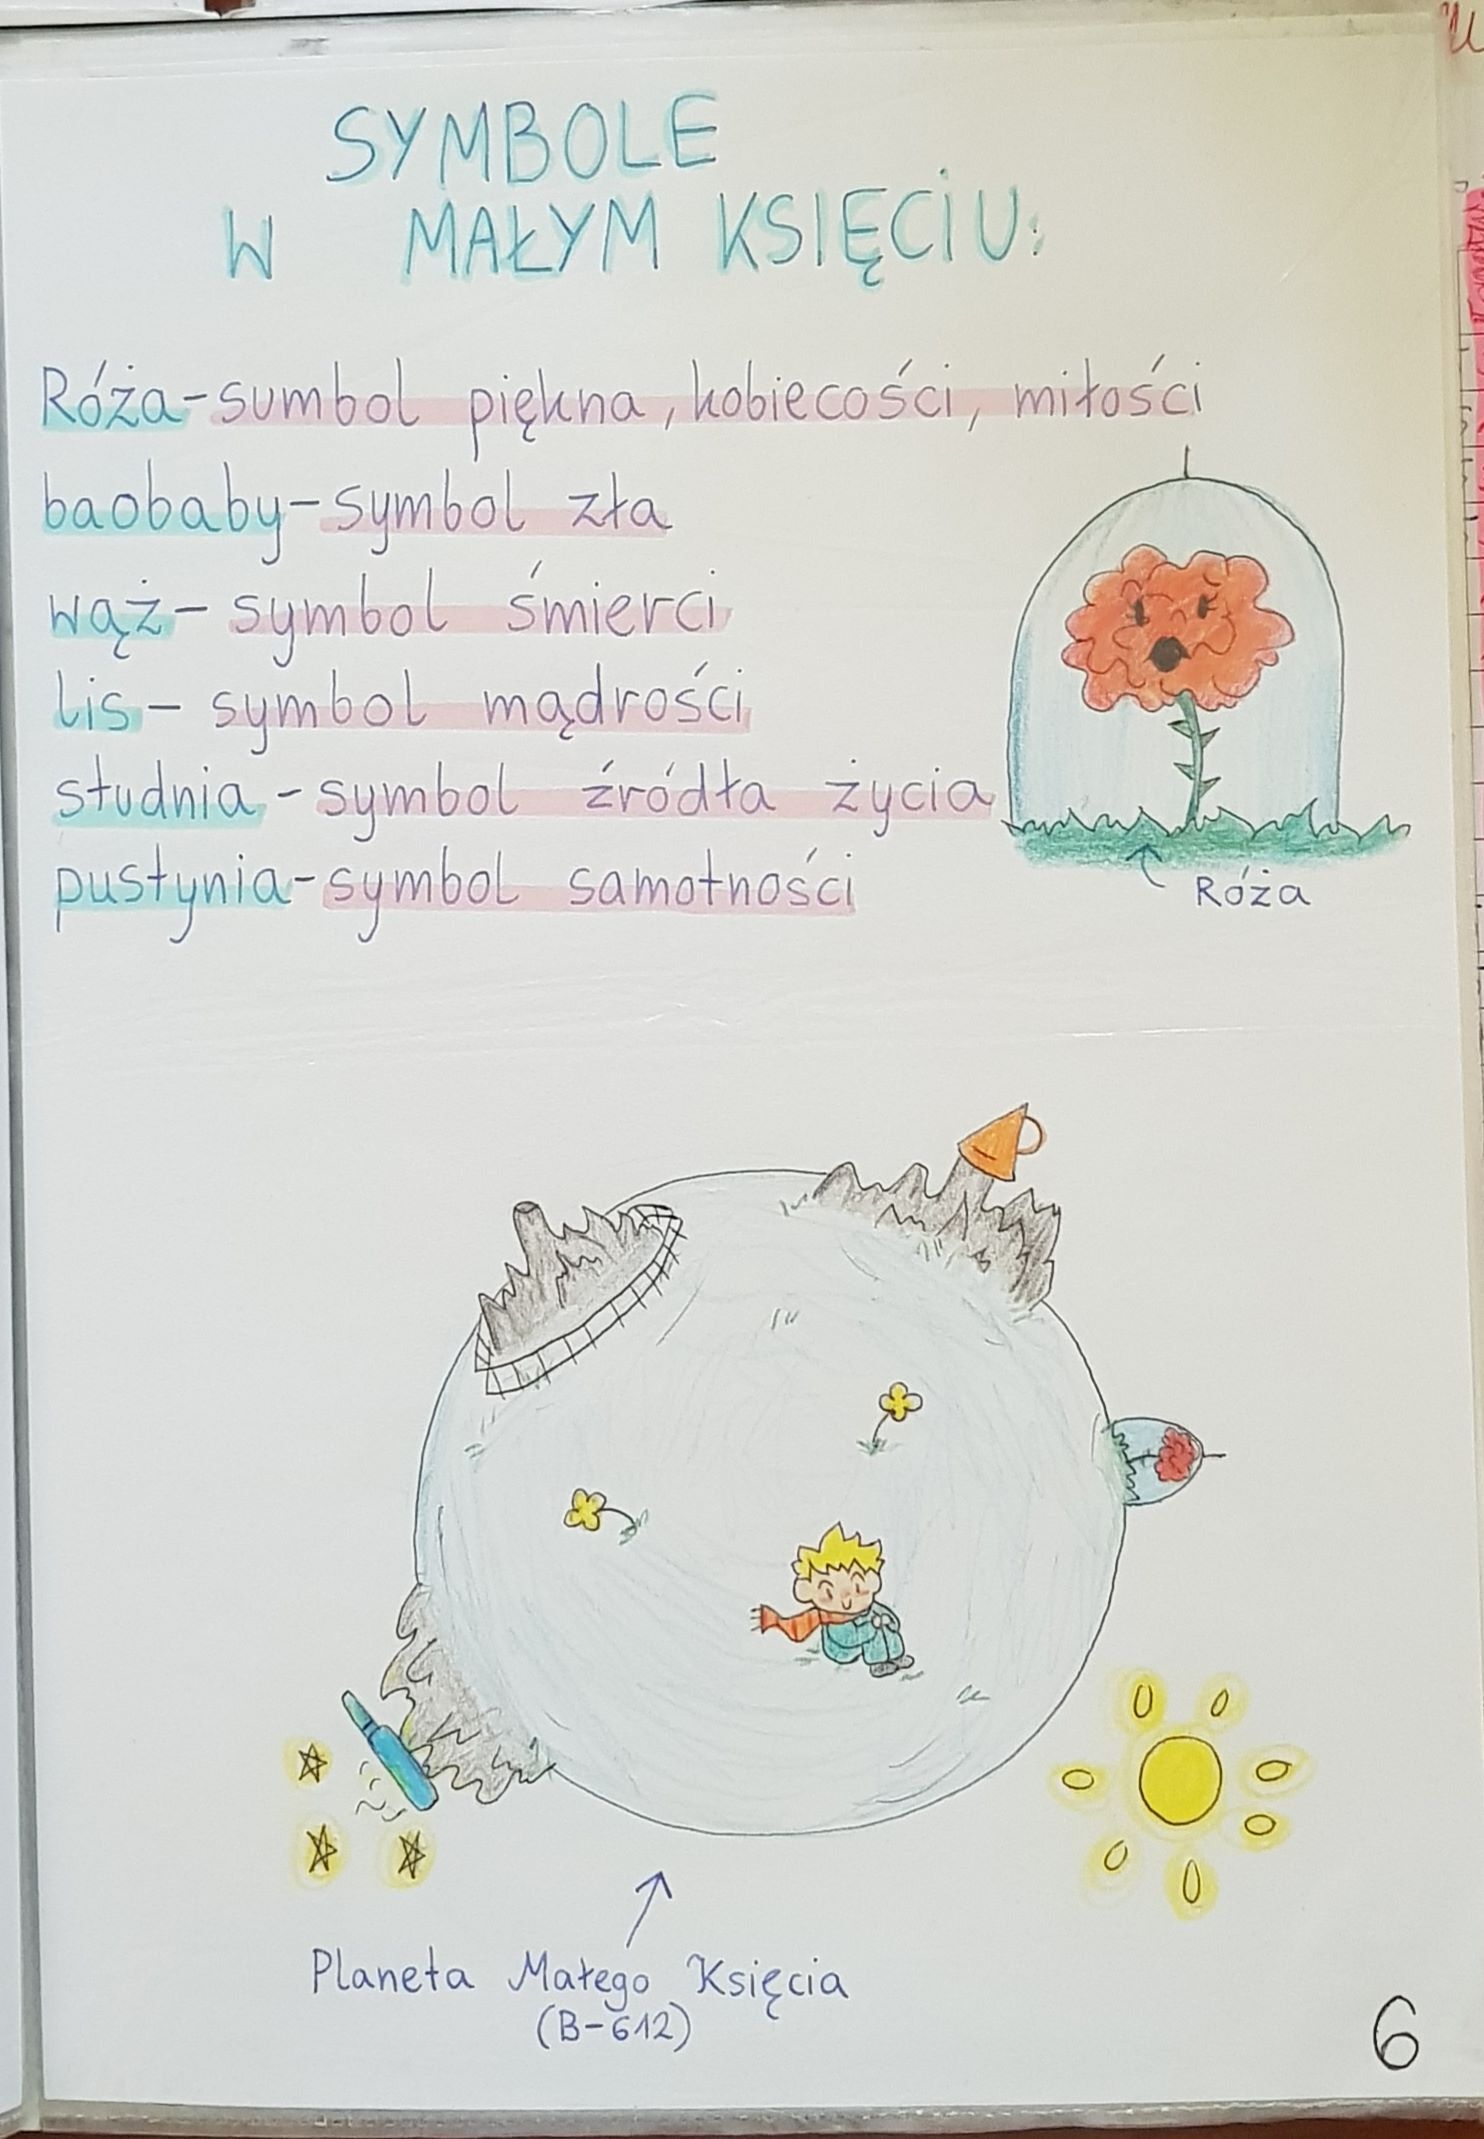 SYMBOLE
W MAŁYM KSIĘCIU:
Róża-sumbol piękna, kobiecości, miłości
baobaby-symbol zła
wąż- symbol śmierci
lis- symbol mądrości
studnia - symbol źródła życia
pustynia-symbol samotności
Róża
Planeta Małego Księcia
(B-612)
6